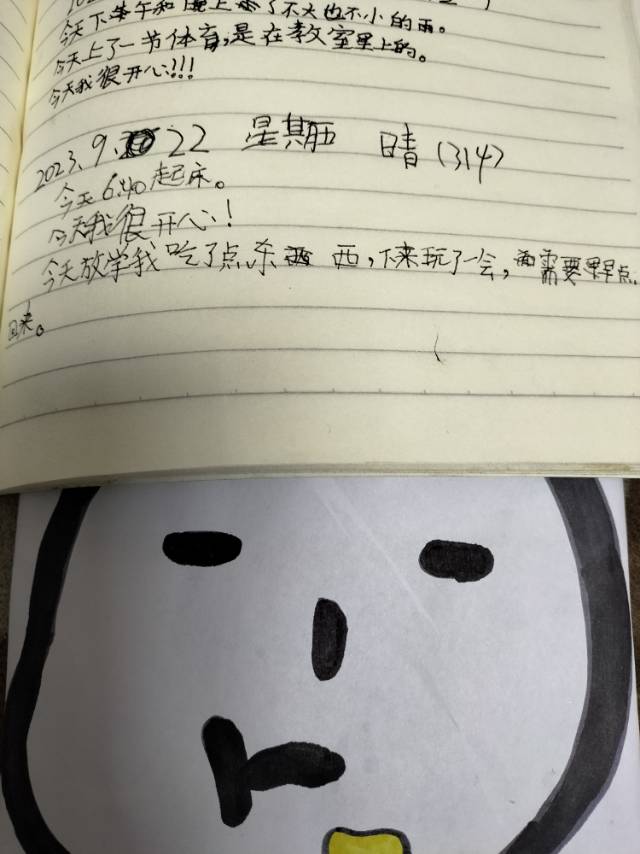 今天下午和晚上下了不大也不小的雨。
今天上了一节体育,是在教室里上的。
今天我很开心!!!
2023.9.22 星期西 晴(314)
今天6:40起床。
今天我很开心!
今天放学我吃了点东西,下来玩了一会,需要早点
回来。